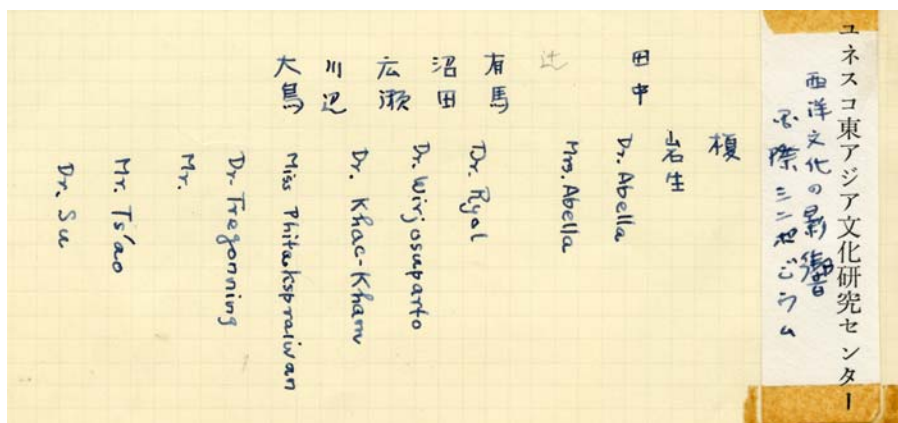 ユネスコ東アジア文化研究センター
西洋文化の影響
国際シンポジウム
榎
岩生
田中
Dr. Abella
辻
Mrs. Abella
有馬
Dr. Ryol
沼田
Dr. Wirjosuparto
広瀬
Dr. Khac-Kham
川辺
Miss Phitakspraiwan
大鳥
Dr. Tregonning
Mr.
Mr. Ts'ao
Dr. Su